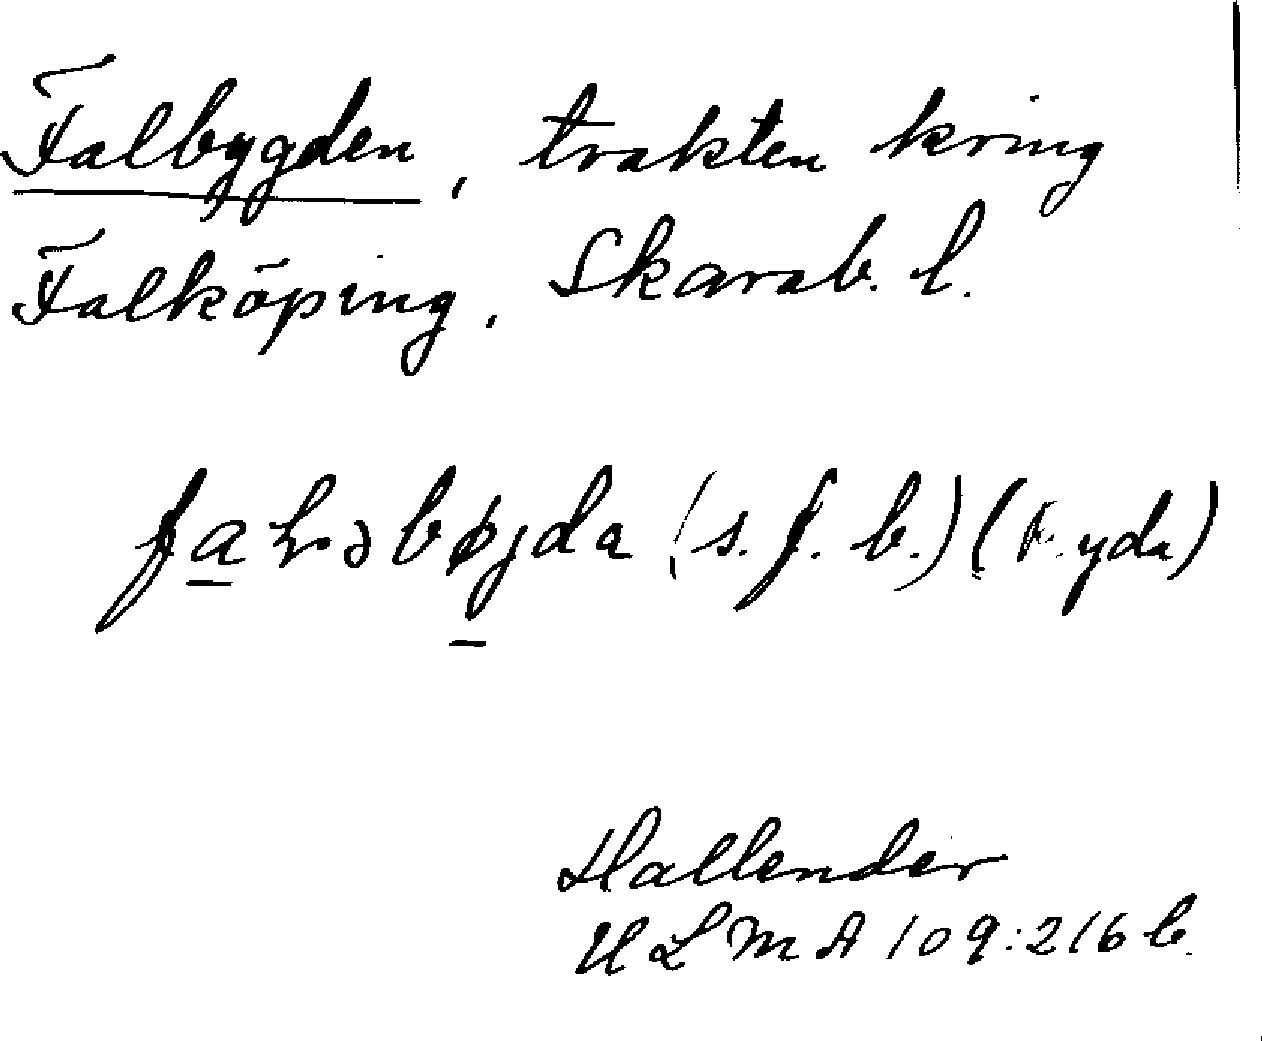 Falbygden, trakten kring
Falköping, Skarab. l.
(s. f. b.)
Hallender
ULMA 109:216 b.